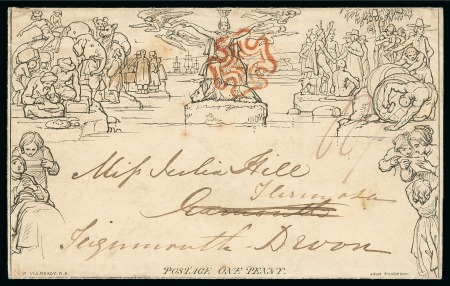 Miss Julia Hill
Teignmouth - Devon
W. MULREADY, R.A.
POSTAGE ONE PENNY.
JOHN THOMPSON.